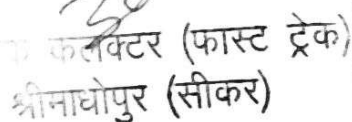 कलक्टर (फास्ट ट्रेक)
श्रीमाधोपुर (सीकर)